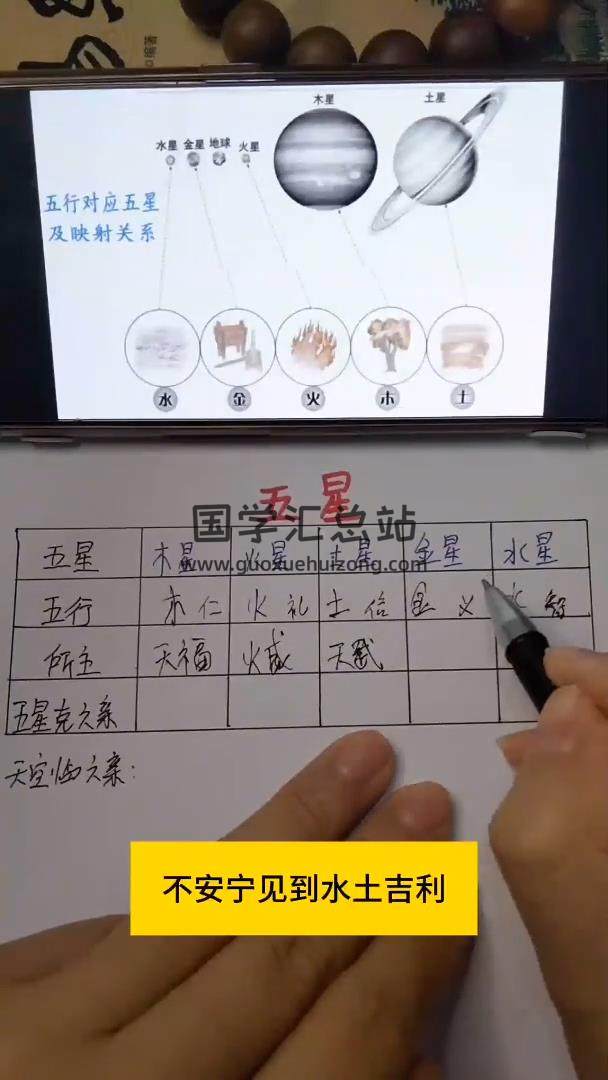 编著
木星 土星
水星 金星 地球 火星
五行对应五星
及映射关系
水 金 火 木 土
五星
国学汇总站
www.guoxuehuizong.com
五星 木星 火星 土星 金星 水星
五行 木 仁 火 礼 土 信 金 义 水 智
所主 天福
五星克六亲
天空临六亲：
不安宁见到水土吉利